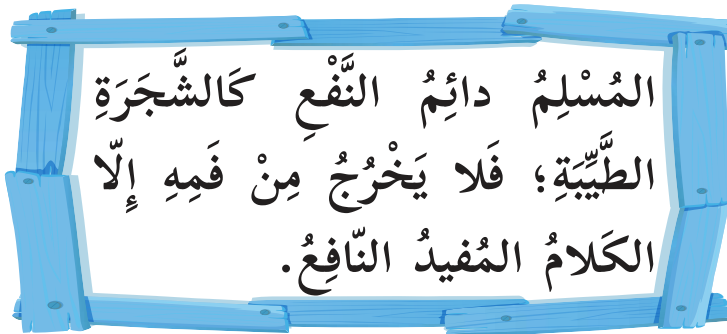 المُسْلِمُ دائِمُ النَّفْعِ كَالشَّجَرَةِ
الطَّيِّبَةِ؛ فَلا يَخْرُجُ مِنْ فَمِهِ إِلّا
الكَلامُ المُفيدُ النّافِعُ.